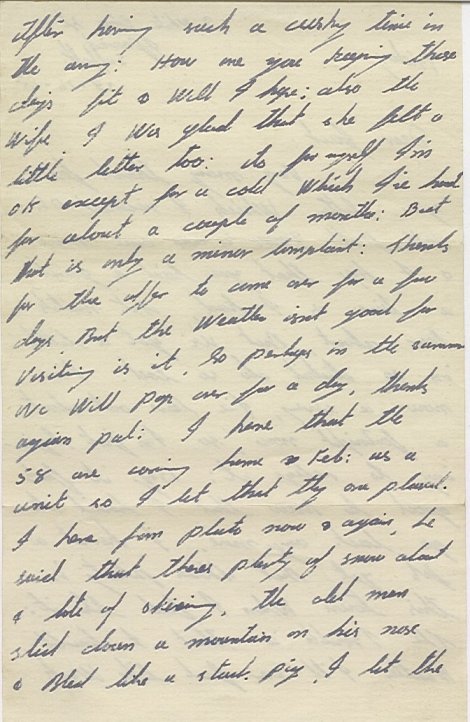 after having such a cushy time in
the army: How are you keeping these
days fit & Well I hope: also the
Wife I Was glad that she felt a
little better too: As for myself I'm
OK except for a cold Which I've had
for about a couple of months: But
that is only a minor complaint: Thanks
for the offer to come over for a few
days But the Weather isnt good for
Visiting is it, So perhaps in the summer
We Will pop over for a day, thanks
again pal: I hear that the
58 are coming home Feb: as a
unit so I bet that they are pleased.
I hear from pluto now & again, he
said that theres plenty of snow about
& lots of skiing, the old man
slid down a mountain on his nose
& Bled like a stuck. pig, I bet the